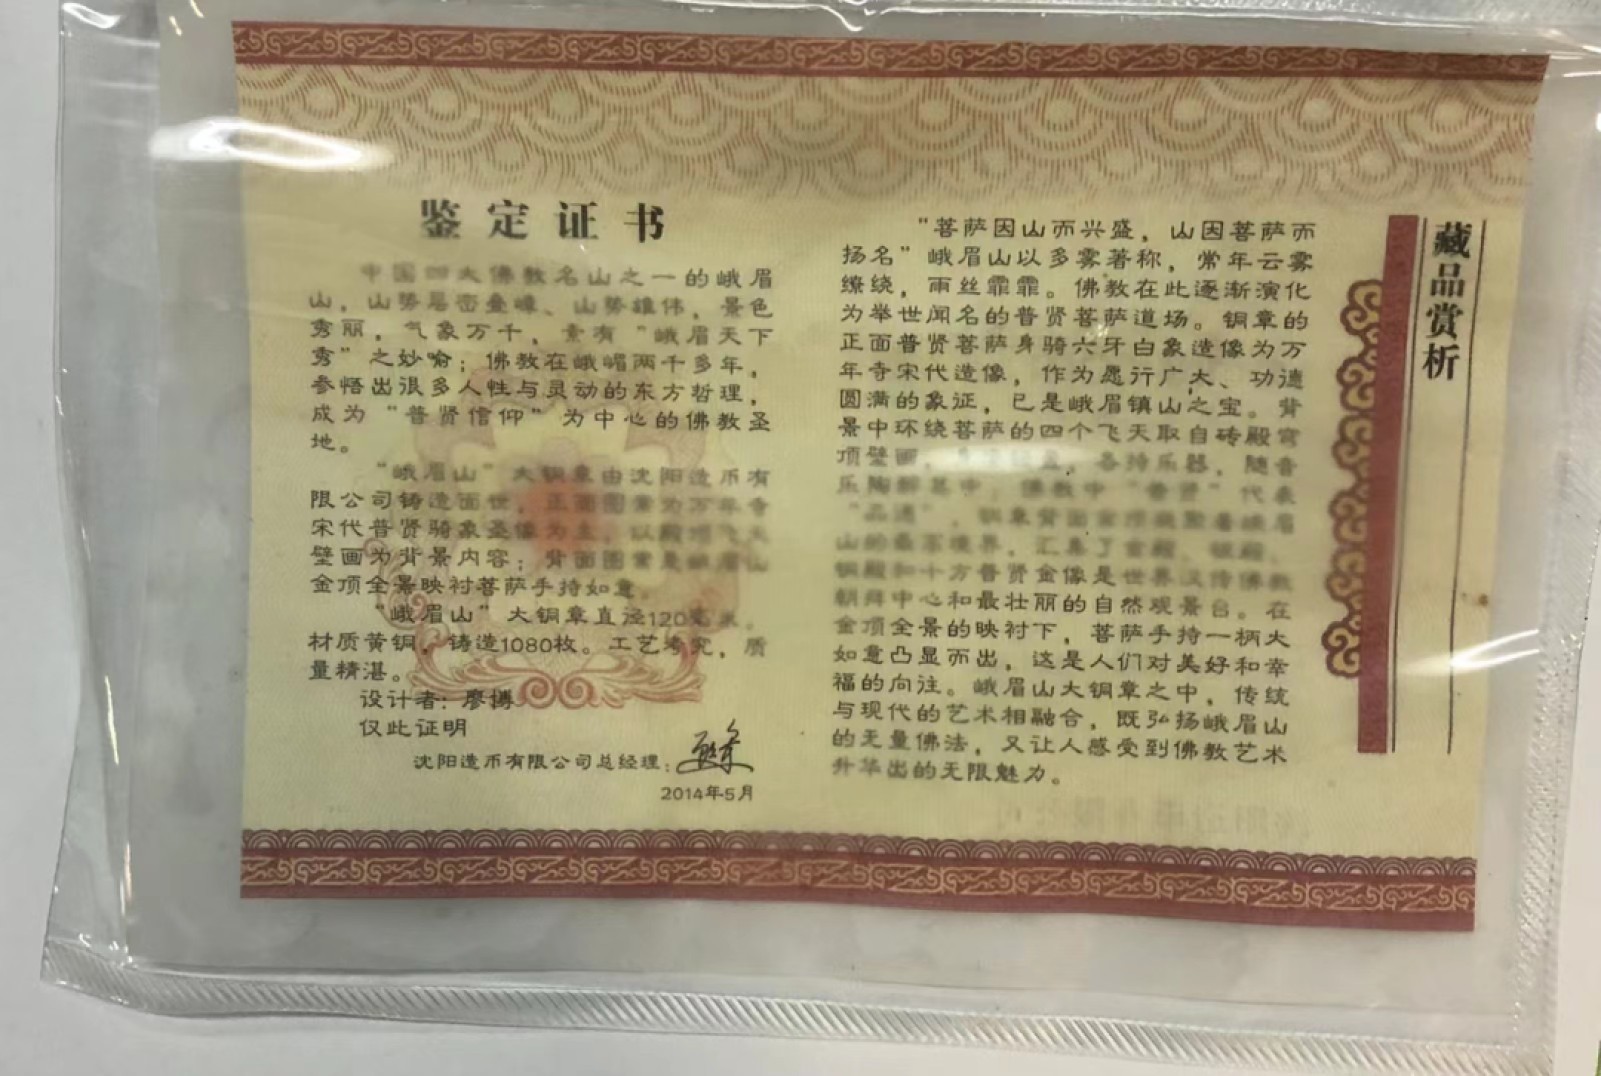 鉴定证书
中国四大佛教名山之一的峨眉
山，山势层峦叠嶂、山势雄伟，景色
秀丽，气象万千，素有“峨眉天下
秀”之妙喻；佛教在峨嵋两千多年，
参悟出很多人性与灵动的东方哲理，
成为“普贤信仰”为中心的佛教圣
地。
“峨眉山”大铜章由沈阳造币有
限公司铸造面世，正面图案为万年寺
宋代普贤骑象圣像为主，以殿
壁画为背景内容；背面图案是峨眉山
金顶全景映衬菩萨手持如意。
“峨眉山”大铜章直径120毫米。
材质黄铜，铸造1080枚。工艺考究，质
量精湛。
设计者：廖博
仅此证明
沈阳造币有限公司总经理：
2014年5月
藏品赏析
“菩萨因山而兴盛，山因菩萨而
扬名”峨眉山以多雾著称，常年云雾
缭绕，雨丝霏霏。佛教在此逐渐演化
为举世闻名的普贤菩萨道场。铜章的
正面普贤菩萨身骑六牙白象造像为万
年寺宋代造像，作为愿行广大、功德
圆满的象征，已是峨眉镇山之宝。背
景中环绕菩萨的四个飞天取自砖殿穹
顶壁画，各持乐器，随音
乐陶醉其中，佛教中“普贤”代表
铜章背面
山的最高境界，汇集了金殿、银殿、
铜殿和十方普贤金像是世界汉传佛教
朝拜中心和最壮丽的自然观景台。在
金顶全景的映衬下，菩萨手持一柄大
如意凸显而出，这是人们对美好和幸
福的向往。峨眉山大铜章之中，传统
与现代的艺术相融合，既弘扬峨眉山
的无量佛法，又让人感受到佛教艺术
升华出的无限魅力。